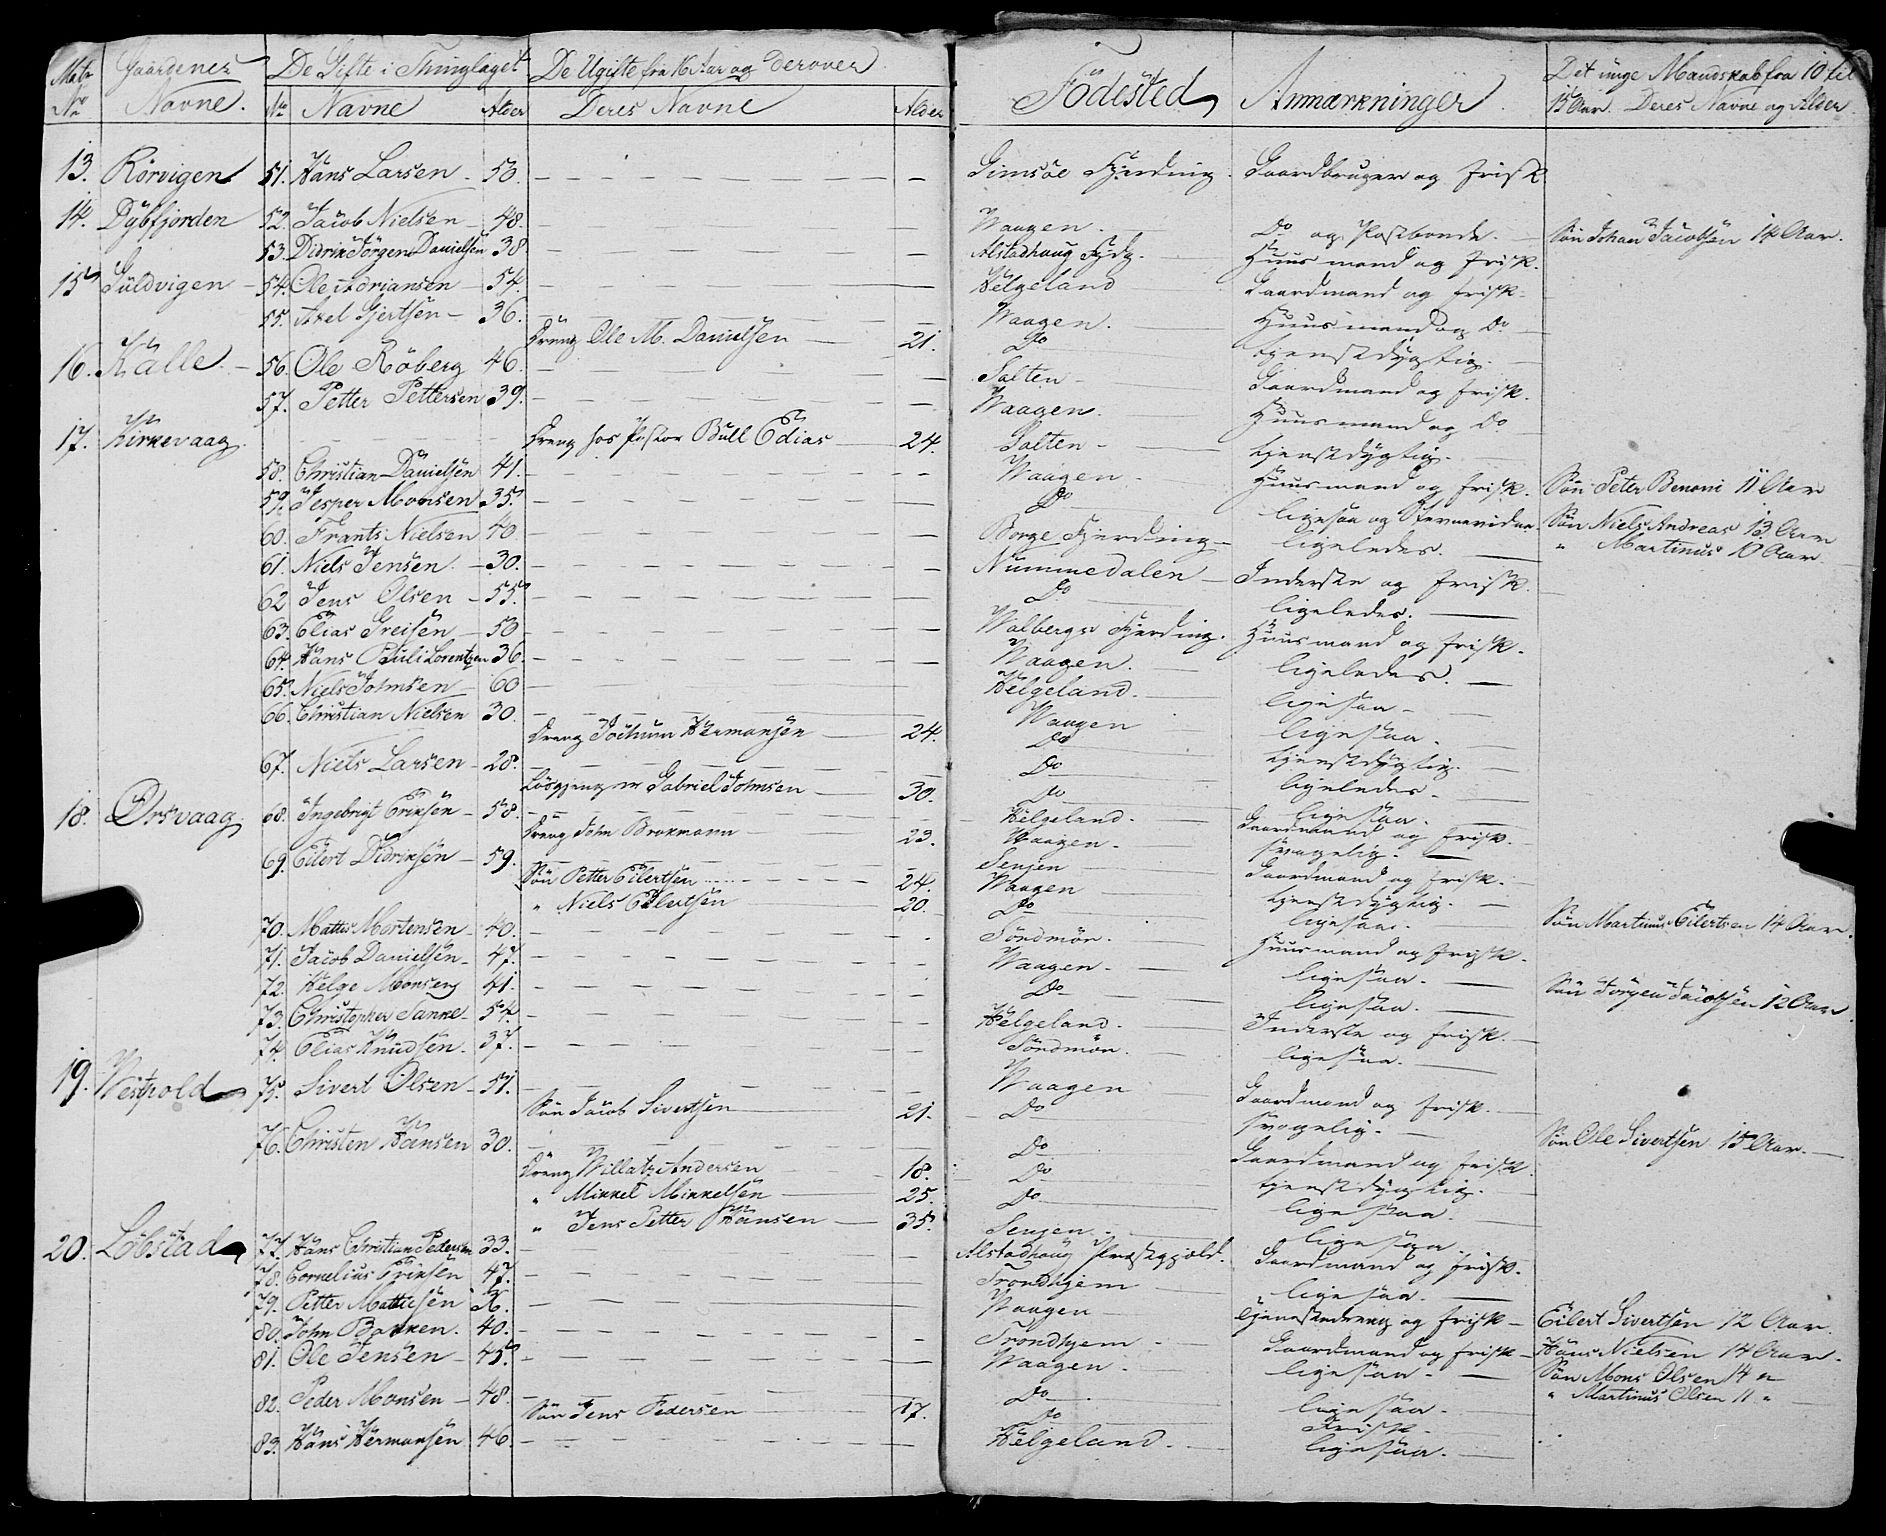 Matr Gaardenes De Gifte i Thinglaget De Ugifte fra 16 Aar og derover Födested Anmærkninger Det unge Mandskab fra 10 til
No Navne. No Navne Alder Deres Navne Alder 15 Aar. Deres Navne og Alder
13. Rörvigen 51. Hans Larsen 50. Gimsöe Fjerding. Gaardbruger og frisk
14. Dybfjorden 52. Jacob Nielsen 48. Waagen. Do og Postbonde. Sön Johan Jacobsen 14 Aar.
53. Didrik Jörgen Danielsen 38 Alstadhaug Fjdg. Huusmand og frisk.
15 Guldvigen 54. Ole Adriansen 54. Helgeland Gaardmand og frisk.
55. Axel Gjertsen 36. Waagen. Huusmand og Do
Dreng Ole M. Danielsen 21. Do tjenstdygtig.
16. Kalle. 56. Ole Röberg 46. Salten Gaardmand og frisk.
57. Petter Pettersen 39. Waagen. Huusmand og Do
17. Kirkevaag. Dreng hos Pastor Bull Edias 24. Salten tjenstdygtig.
58. Christian Danielsen 41. Waagen Huusmand og frisk. Sön Peter Benoni 11 Aar
59. Jesper Monsen 35. Do ligesaa og Sön Niels Andreas 13 Aar
60. Frants Nielsen 40. Borge Fjerding ligeledes. " Martinus 10 Aar
61. Niels Jensen. 30. Nummedalen Inderste og frisk.
62 Jens Olsen 55. Do ligeledes.
63. Elias Greisen 50 Walbergs Fjerding. Huusmand og frisk.
64. Hans Pauli Lorentzen 36. Waagen. ligeledes.
65. Niels Johnsen 60 Helgeland. ligesaa
66. Christian Nielsen 30. Waagen ligesaa.
Dreng Jochum Hermansen 24. Do tjenstdygtig.
67. Niels Larsen 28. Do ligeledes.
Lösgjenger Gabriel Johnsen 30. Do ligesaa.
18. Orsvaag. 68. Ingebrigt Eriksen 58. Helgeland. Gaardmand og frisk.
Dreng John Brokmann 23. Waagen. svagelig.
69. Eilert Didriksen 59. Senjen Gaardmand og frisk.
Sön Petter Eilertsen 24. Waagen tjenstdygtig.
" Niels Eilertsen 20. Do ligesaa. Sön Martinus Eilertsen 14 Aar.
70. Mattis Mortensen 40. Söndmör. Huusmand og frisk.
71. Jacob Danielsen 47. Waagen. ligesaa. Sön Jörgen Jacobsen 12 Aar.
72. Helge Monsen 41. Do ligesaa.
73. Christopher Sanne 54. Helgeland. Inderste og frisk.
74. Elias Knudsen. 37. Söndmör. ligesaa.
19. Westpold 75. Sivert Olsen 51. Waagen Gaardmand og frisk.
Sön Jacob Sivertsen 21. Do svagelig. Sön Ole Sivertsen 15 Aar.
76. Christen Hansen 30. Do Gaardmand og frisk.
Dreng Willatz Andersen 18. Do tjenstdygtig.
" Mikkel Mikkelsen 25. Do ligesaa.
" Jens Petter Hansen 35. Senjen. ligesaa.
20. Löbstad 77. Hans Christian Pedersen 33. Alstadhaug Præstegjæld. Gaardmand og frisk.
78. Cornelius Eriksen 47. Trondhjem ligesaa.
79. Petter Mattisen Waagen Tjenestedreng og frisk Eilert Sivertsen 12 Aar.
80. John Bakken. 40. Trondhjem Gaardmand og frisk Hans Nielsen 14 Aar.
81. Ole Jensen 45. Waagen. ligesaa. Sön Mons Olsen 14 "
82. Peder Monsen 48. Do ligesaa. " Martinus Olsen 11 "
Sön Jens Pedersen 17. Do Frisk.
83. Hans Hermansen 46. Helgeland. ligesaa.